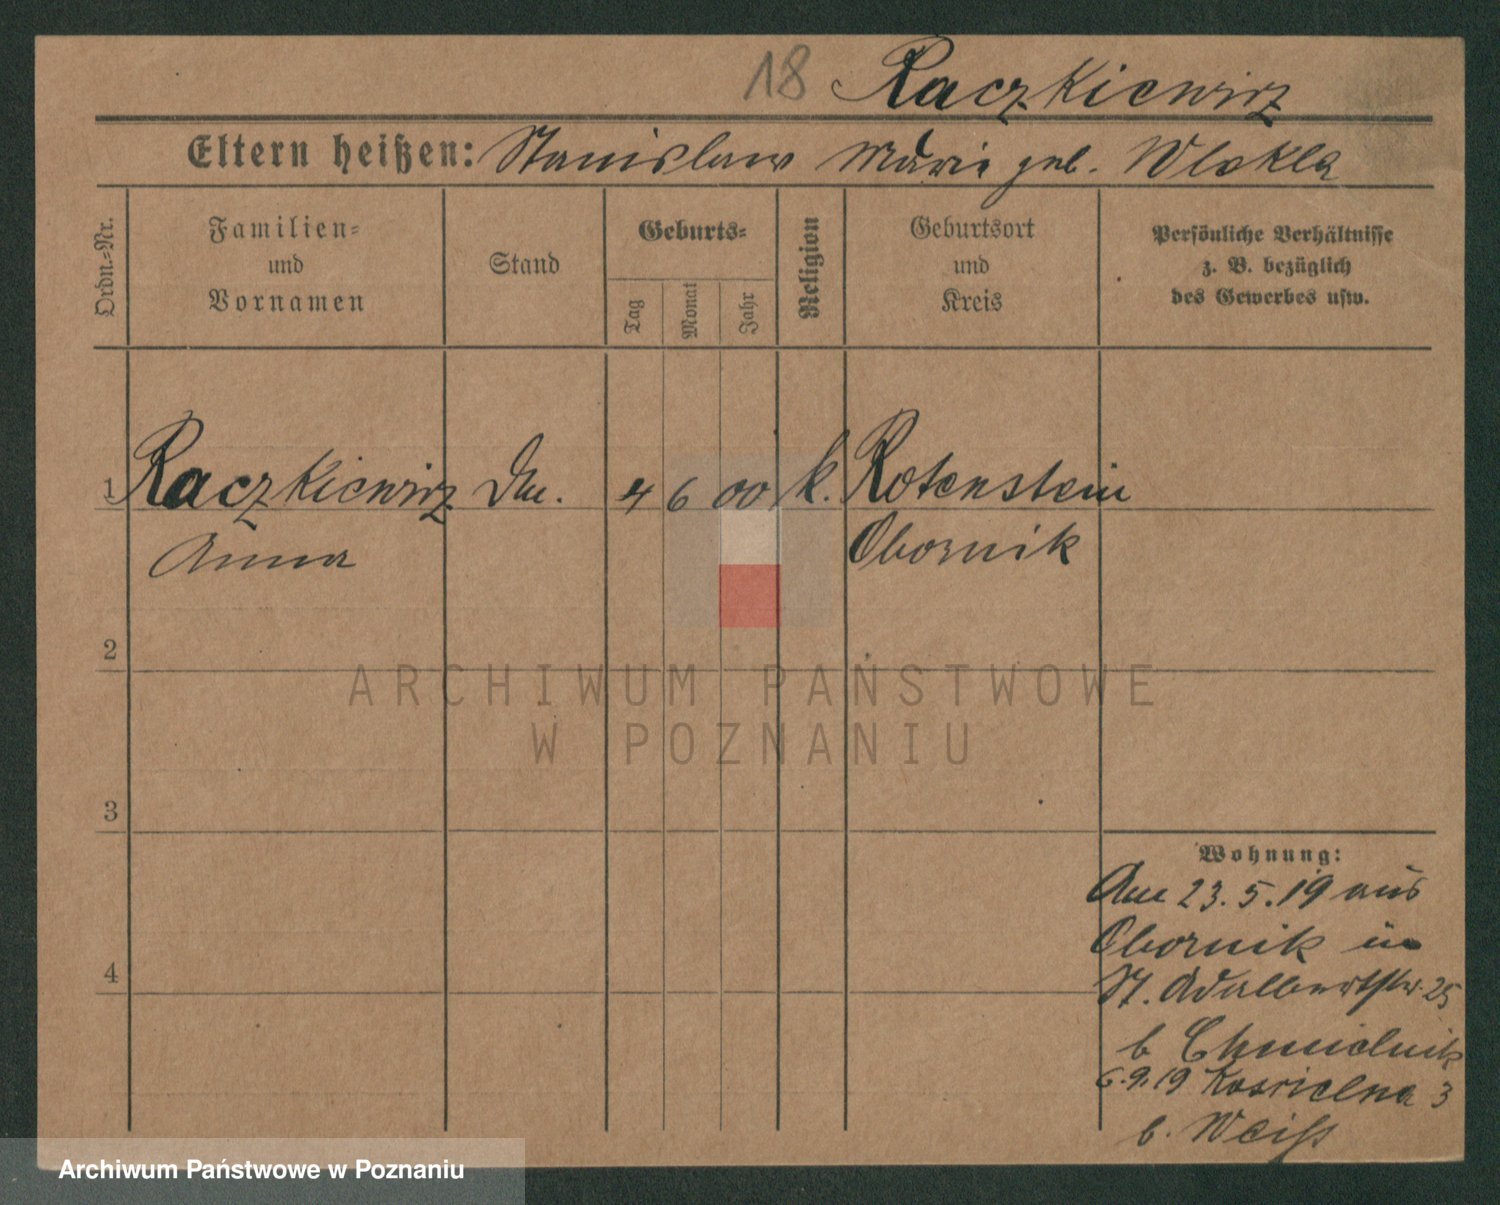 18 Raczkiewicz
Eltern heißen: Stanislaw Marie geb. Wlokla
Ordn.=Nr.
Familien=
und
Vornamen
Stand
Geburts=
Tag
Monat
Jahr
Religion
Geburtsort
und
Kreis
Persönliche Verhältnisse
z. B. bezüglich
des Gewerbes usw.
1 Raczkiewicz 4 6 00 k. Rotenstein
Anna Obornik
2
3
4
Wohnung:
Am 23.5.19 aus
Obornik in
St. Adalbertstr. 25
b Chmielnik
6.9.19 Koscielna 3
b. Weiss
ARCHIWUM PAŃSTWOWE
W POZNANIU
Archiwum Państwowe w Poznaniu